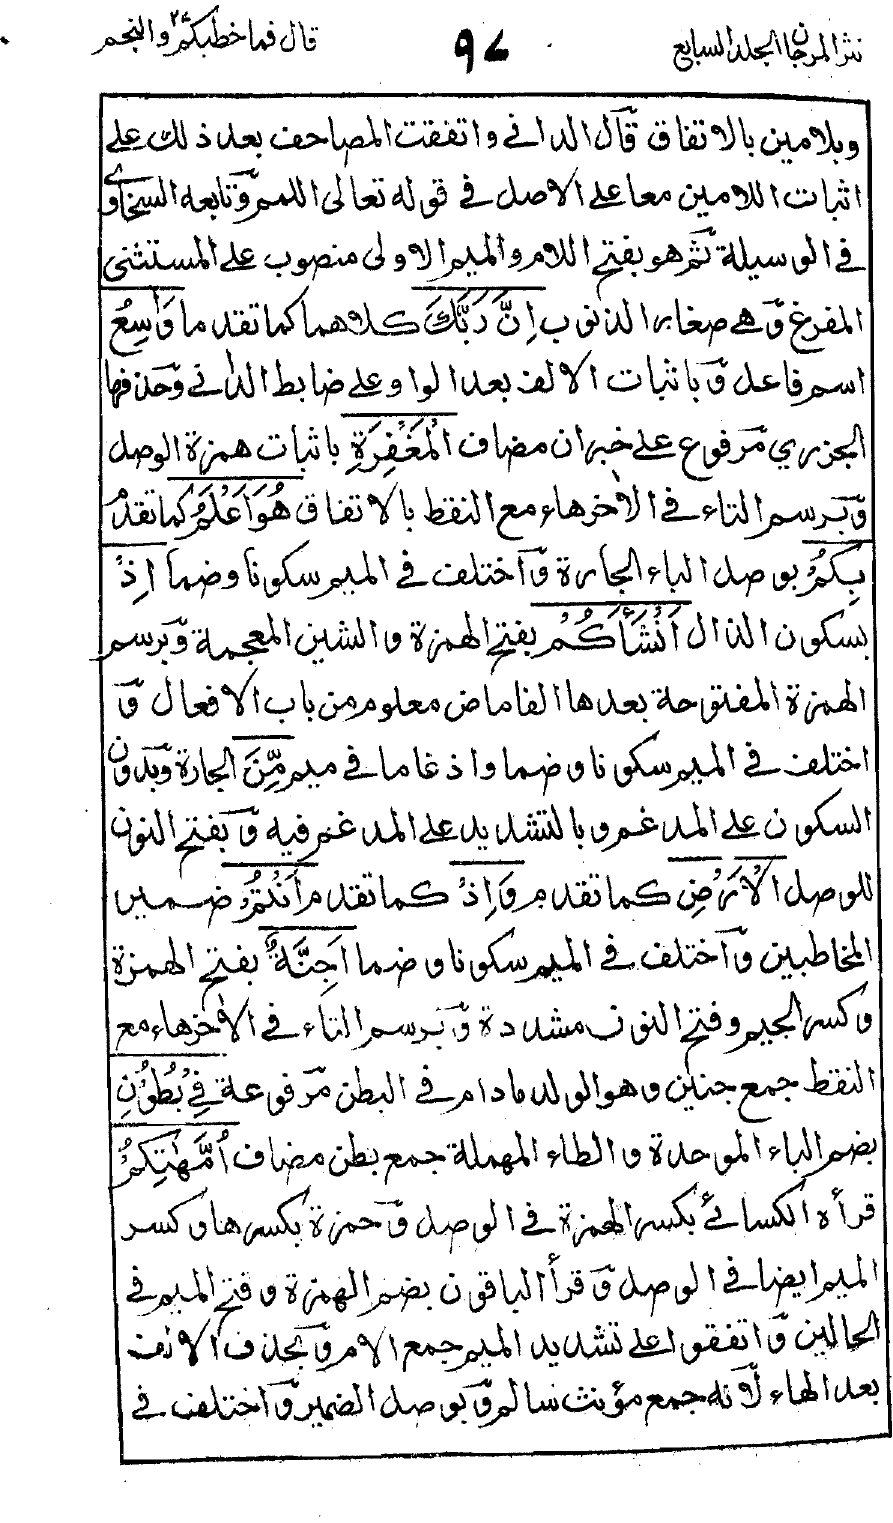 نثر المرجان الجلد السابع
٩٧
قال فما خطبكم ٢٧ والنجم
وبلامين بالاتفاق قال الداني واتفقت المصاحف بعد ذلك على
اثبات اللامين معا على الاصل في قوله تعالى اللمم وتابعه السخاوي
في الوسيلة ثم هو بفتح اللام والميم الاولى منصوب على المستثنى
المفرغ وهي صغاير الذنوب اِنَّ رَبَّكَ كلاهما كما تقدما وَاسِعُ
اسم فاعل وباثبات الالف بعد الواو على ضابط الداني وحذفها
الجزري مرفوع على خبر ان مضاف الْمَغْفِرَةِ باثبات همزة الوصل
وبرسم التاء في الاٰخر هاء مع النقط بالاتفاق هُوَ اَعْلَمُ كما تقدم
بِكُمْ بوصل الباء الجارة واختلف في الميم سكونا وضما اِذْ
بسكون الذال اَنْشَأَكُمْ بفتح الهمزة والشين المعجمة وبرسم
الهمزة المفتوحة بعدها الفا ماض معلوم من باب الافعال و
اختلف في الميم سكونا وضما وادغاما في ميم مِّنَ الجارة وبدون
السكون على المدغم وبالتشديد على المدغم فيه وبفتح النون
للوصل الْاَرْضِ كما تقدم وَاِذْ كما تقدم اَنْتُمْ ضمير
المخاطبين واختلف في الميم سكونا وضما اَجِنَّةٌ بفتح الهمزة
وكسر الجيم وفتح النون مشددة وبرسم التاء في الاٰخر هاء مع
النقط جمع جنين وهو الولد مادام في البطن مرفوعة فِيْ بُطُوْنِ
بضم الباء الموحدة والطاء المهملة جمع بطن مضاف اُمَّهٰتِكُمْ
قرأه الكسائي بكسر الهمزة في الوصل وحمزة بكسرها وكسر
الميم ايضا في الوصل وقرأ الباقون بضم الهمزة وفتح الميم في
الحالين واتفقوا على تشديد الميم جمع الام وبحذف الالف
بعد الهاء لانه جمع مؤنث سالم وبوصل الضمير واختلف في